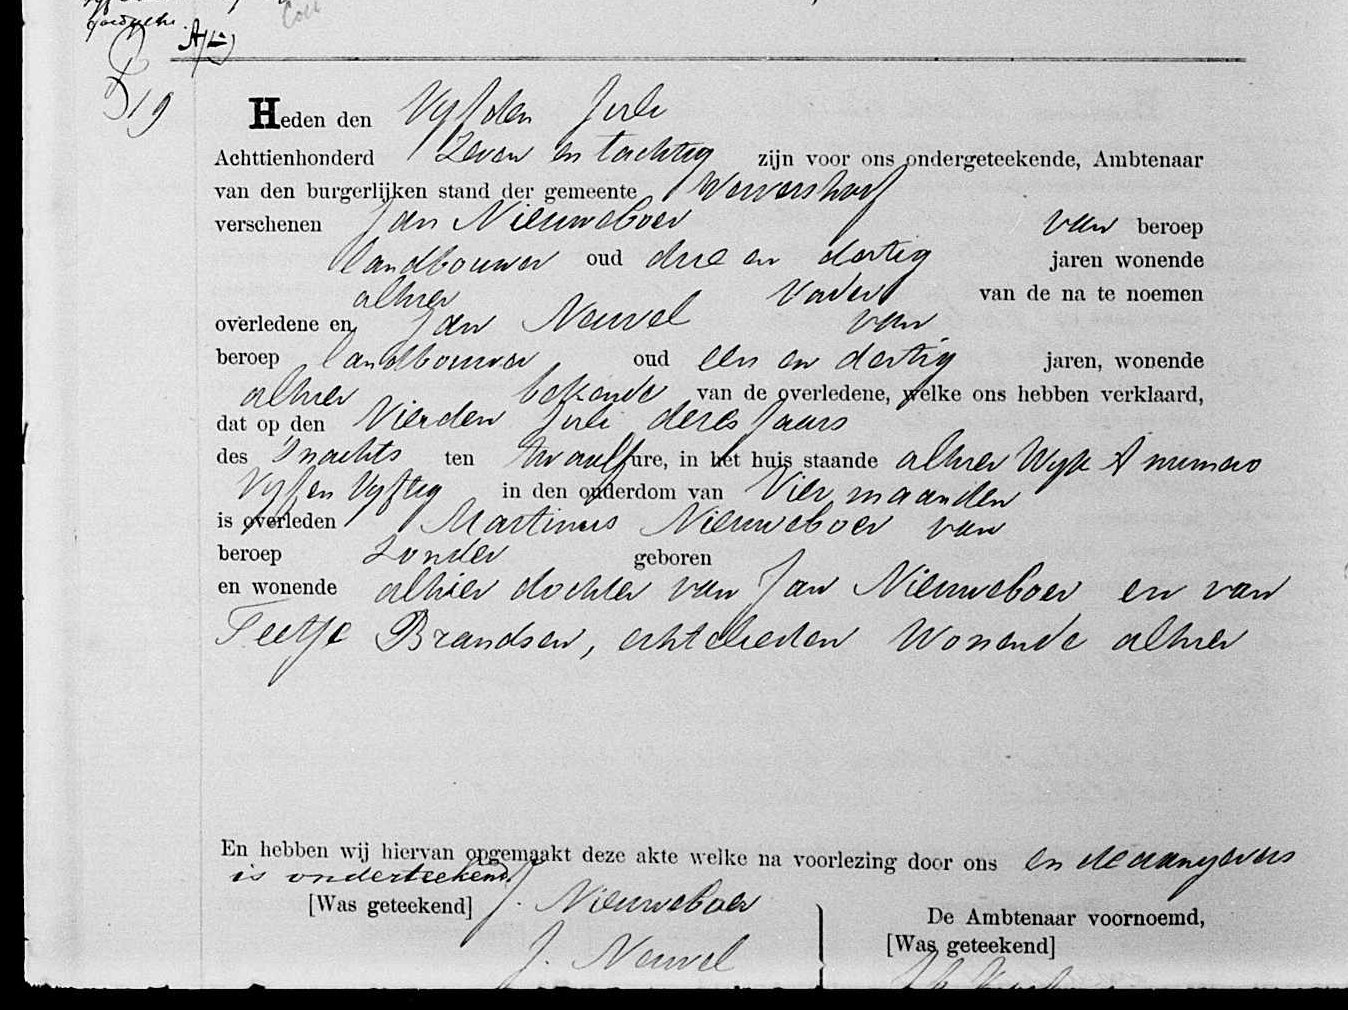 A(L)
19
Heden den Vyfden Juli
Achttienhonderd Zeven en tachtig zijn voor ons ondergeteekende, Ambtenaar
van den burgerlijken stand der gemeente Wervershoof
verschenen Jan Nieuweboer van beroep
landbouwer oud drie en dertig jaren wonende
alhier Vader van de na te noemen
overledene en Jan Neuvel van
beroep landbouwer oud een en dertig jaren, wonende
alhier bekende van de overledene, welke ons hebben verklaard,
dat op den Vierden Juli dezes Jaars
des 's nachts ten twaalf ure, in het huis staande alhier Wyk A numero
Vyf en Vyftig in den ouderdom van Vier maanden
is overleden Martinus Nieuweboer van
beroep zonder geboren
en wonende alhier dochter van Jan Nieuweboer en van
Teetje Brandsen, echtelieden Wonende alhier
En hebben wij hiervan opgemaakt deze akte welke na voorlezing door ons en de aangevers
is onderteekend.
[Was geteekend] J. Nieuweboer
J. Neuvel
De Ambtenaar voornoemd,
[Was geteekend]